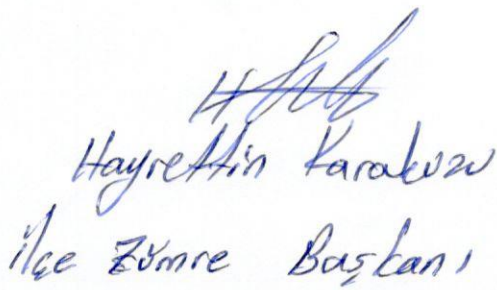 Hayrettin Karakuzu
ilçe Zümre Başkanı